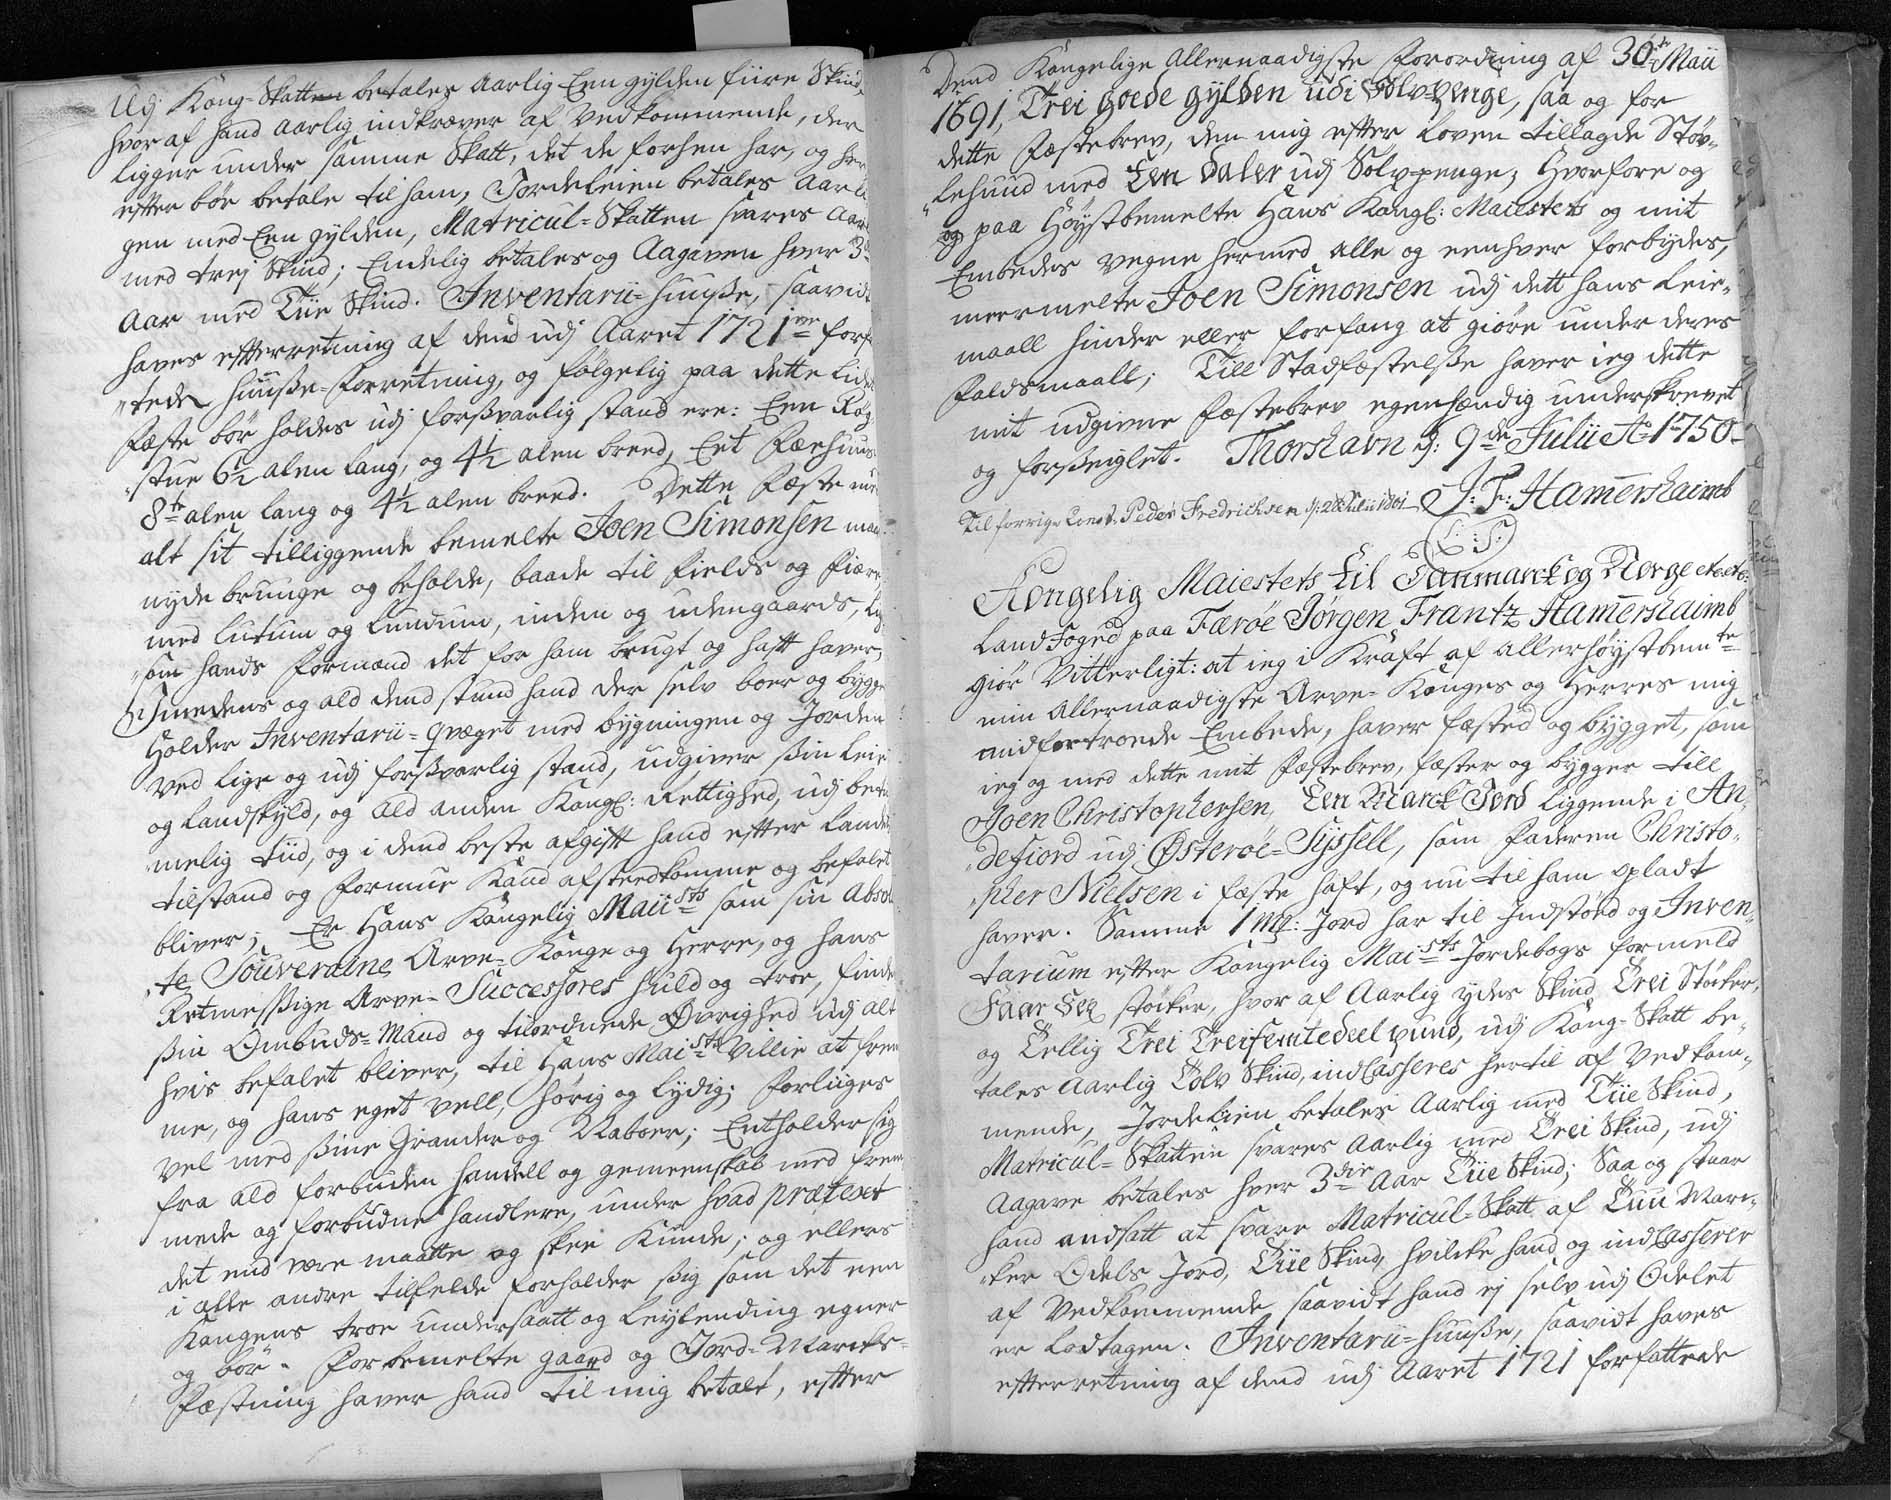 Udj Kong-Skatten betales Aarlig Een gylden fiire Skind,
hvor af hand Aarlig indkræver af Vedkommende, der
ligger under samme Skatt, det de forhen har, og her
efter bör betale til ham, Jordeleien betales Aarli
gen med Een gylden, Matricul-Skatten svares Aar
med trej Skind; Endelig betales og Aagaven hver 3de
Aar med Tiie Skind. Inventarii-Huusße, saavidt
haves efterretning af dend udj Aaret 1721 forfat
tede Huusße-Forretning, og fölgelig paa dette
Fæste bör holdes udj forßvarlig stand ere: Een Rög-
stue 6½ alen lang, og 4½ alen breed, Eet Fæehuus
8te alen lang og 4½ alen breed. Dette Fæste med
alt sit tilliggende bemelte Joen Simonsen maa
nyde bruuge og beholde, baade til Fields og Fiære
med Lutum og Lundum, inden og udengaards, lig-
som hands Formand det for ham brugt og hafft haver,
Imedens og ald dend stund hand der selv boer og bygger
Holder Inventarii-qvæget med bygningen og Jorden
ved lige og udj forßvarlig stand, udgiver ßin Leie
og Landskyld, og ald anden Kongl: Rettighed, udj beta
melig tiid, og i dend beste afgifft hand efter Landets
tilstand og Formue Kand afstedkomme og befalet
bliver; Er Hans Kongelig Maiists som sin Absolu
te Souveraine Arve-Konge og Herre, og hans
Retmesßige Arve-Successores huld og troe, finde
ßin Ombuds-Mand og tilordnede Øvrighed udj alt
hvis befalet bliver, til Hans Maists Villie at frem
me, og hans eget vell, hörig og lydig; forliiges
vel med ßine Grander og Naboer; Entholder sig
fra ald forbuden handell og gemeenskab med frem
mede og forbudne handlere, under hvad prætext
det end vere maatte og skee Kunde; og ellers
i alle andre tilfelde forholder ßig som det een
Kongens troe undersaatt og Leylending egner
og bör. Forbemelte gaard og Jord-Marcks-
Fæstning haver hand til mig betalt, efter
Dend Kongelige Allernaadigste Forordning af 30te Maii
1691, Trei goede gylden udi Sölv-penge, saa og for
dette Fæstebrev, den mig efter Loven tillagde Stöv-
lehuud med Een Daler udj Sölv-penge; Hvorfore og
og paa Höystbemelte Hans Kongl: Maiestets og mit
Embedes vegne hermed alle og eenhver forbydes,
meermelte Joen Simonsen udj dett hans Leie-
maall hinder eller forfang at giöre under deres
Faldsmaall; Till Stadfæstelße haver ieg dette
mit udgivne Fæstebrev egenhændig underskrevet
og forßeiglet. Thorshavn d: 9de Julii Ao 1750
Til forrige Const. Peder Fredrichsen J: F: Hamershaimb
(L: S:)
Kongelig Maiestets Til Danmarck og Norge etc: etc:
Landfoged paa Færöe Jörgen Frantz Hamershaimb
Giör Vitterligt: at ieg i Kraft af Allerhöystbemte
min Allernaadigste Arve-Konges og Herres mig
anfortroede Embede, haver fæsted og bygget, som
ieg og med dette mit Fæstebrev, fæster og bygger till
Joen Christophersen, Een Marck Jord liggende i An-
defiord udj Østeröe-Syssell, som Faderen Christo-
pher Nielsen i fæste haft, og nu til ham opladt
haver. Samme 1 mk: Jord har til Indstöed og Inven-
tarium efter Kongelig Maists Jordebogs formeld
Faar Sex stöcker, hvor af Aarlig ydes Skind Trei Stöcker,
og Tellig Trei Treifemtedeel pund, udj Kong-Skatt be-
tales Aarlig Tolv Skind, indCasseres hertil af Vedkom-
mende, Jordeleien betales Aarlig med Tiie Skind,
Matricul-Skatten svares Aarlig med Trei Skind, udj
Aagave betales hver 3die Aar Tiie Skind; Saa og staar
hand ansatt at svare Matricul-Skatt af Tuu Marc-
ker Odels Jord, Tiie Skind, hvilcke hand og indCasserer
af Vedkommende saavidt hand ej selv udj Odelet
er Lodtagen. Inventarii-Huusße, saavidt haves
efterretning af dend udj Aaret 1721 forfattede